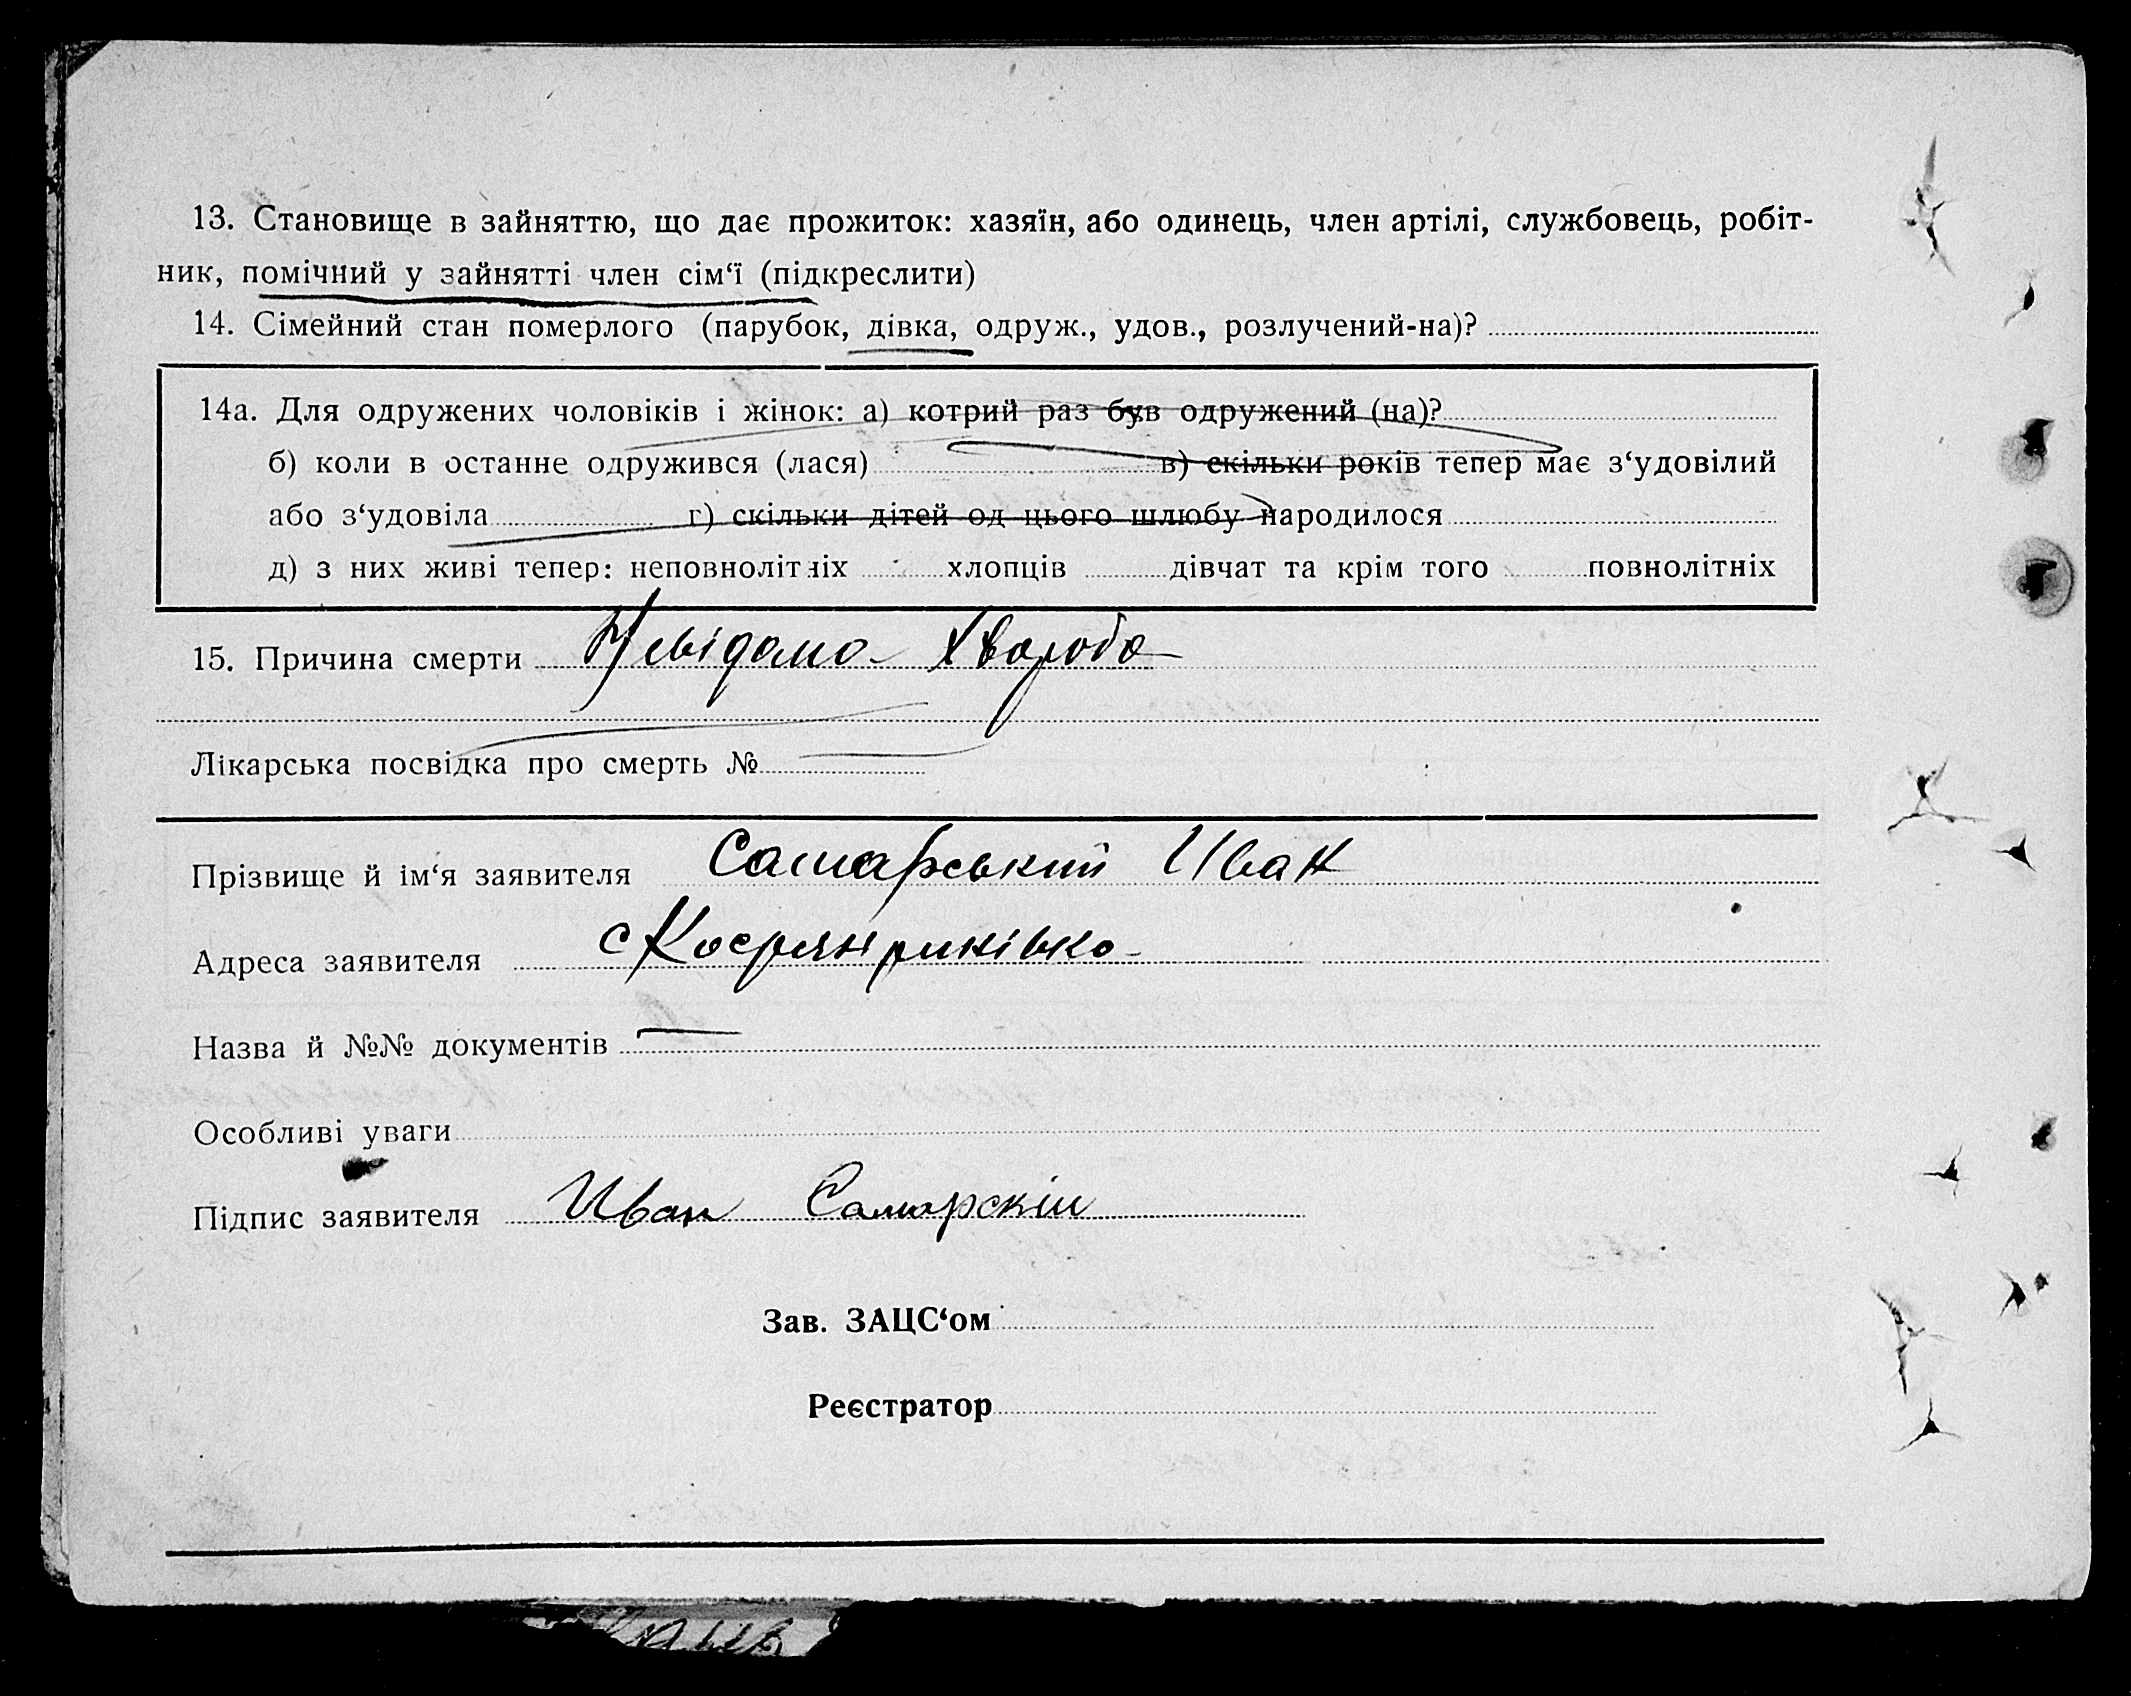 13. Становище в зайняттю, що дає прожиток: хазяїн, або одинець, член артілі, службовець, робіт-
ник, помічний у зайнятті член сім‘ї (підкреслити)
14. Сімейний стан померлого (парубок, дівка, одруж., удов., розлучений-на)?
14а. Для одружених чоловіків і жінок: а) котрий раз був одружений (на)?
б) коли в останне одружився (лася) в) скільки років тепер має з‘удовілий
або з‘удовіла г) скільки дітей од цього шлюбу народилося
д) з них живі тепер: неповнолітніх хлопців дівчат та крім того повнолітніх
15. Причина смерти Невідома Хвороба
Лікарська посвідка про смерть №
Прізвище й ім‘я заявителя Самарський Иван
Адреса заявителя с
Назва й №№ документів
Особливі уваги
Підпис заявителя Иван Самарскій
Зав. ЗАЦС‘ом
Реєстратор